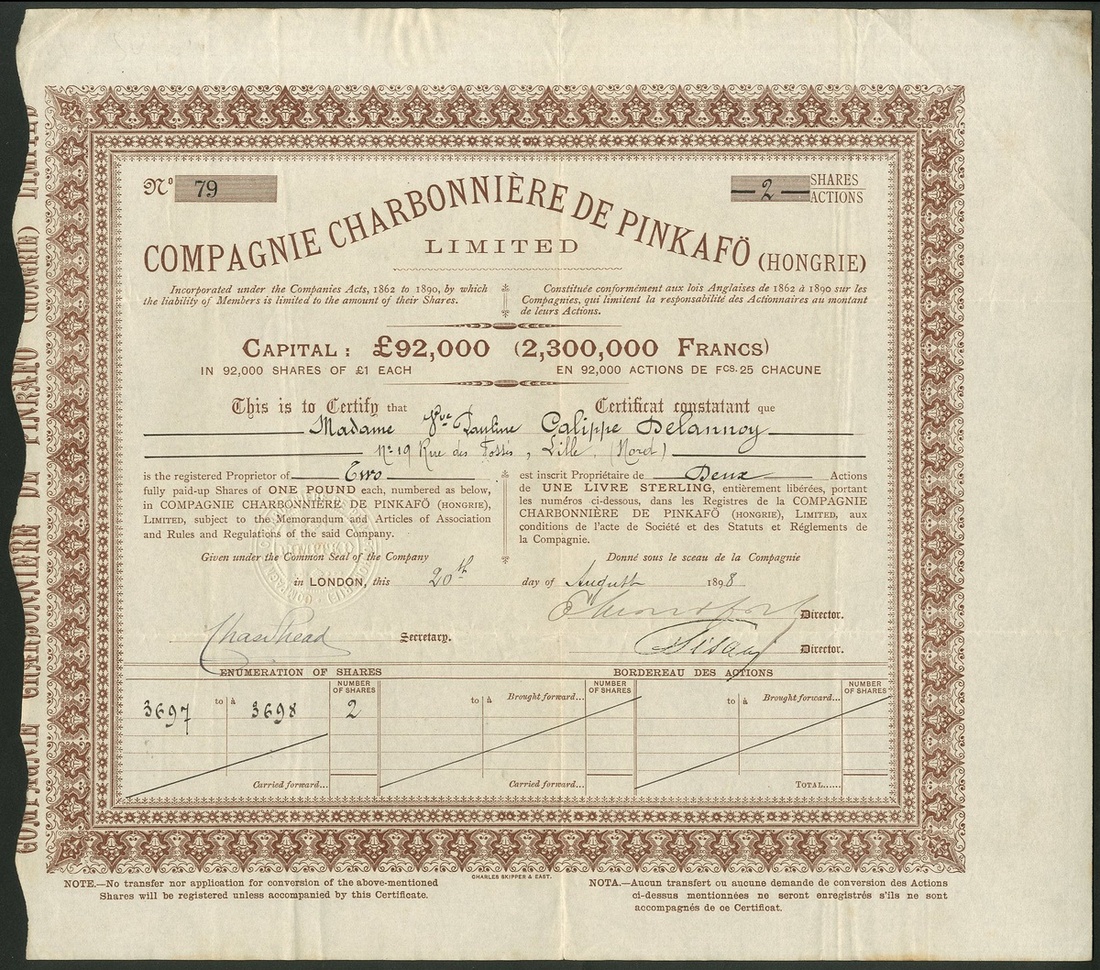 COMPAGNIE CHARBONNIÈRE DE PINKAFÖ (HONGRIE) LIMITED
Nº 79
2 SHARES
ACTIONS
COMPAGNIE CHARBONNIÈRE DE PINKAFÖ (HONGRIE)
LIMITED
Incorporated under the Companies Acts, 1862 to 1890, by which
the liability of Members is limited to the amount of their Shares.
Constituée conformément aux lois Anglaises de 1862 à 1890 sur les
Compagnies, qui limitent la responsabilité des Actionnaires au montant
de leurs Actions.
CAPITAL: £92,000 (2,300,000 FRANCS)
IN 92,000 SHARES OF £1 EACH
EN 92,000 ACTIONS DE FCS. 25 CHACUNE
This is to Certify that
Certificat constatant que
Madame Vve Pauline Calippe Delannoy
No 19 Rue des Fossés, Lille, (Nord)
is the registered Proprietor of Two
fully paid-up Shares of ONE POUND each, numbered as below,
in COMPAGNIE CHARBONNIÈRE DE PINKAFÖ (HONGRIE),
LIMITED, subject to the Memorandum and Articles of Association
and Rules and Regulations of the said Company.
est inscrit Propriétaire de Deux Actions
de UNE LIVRE STERLING, entièrement libérées, portant
les numéros ci-dessous, dans les Registres de la COMPAGNIE
CHARBONNIÈRE DE PINKAFÖ (HONGRIE), LIMITED, aux
conditions de l'acte de Société et des Statuts et Réglements de
la Compagnie.
Given under the Common Seal of the Company
Donné sous le sceau de la Compagnie
in LONDON, this 20th day of August 1898
Director.
Secretary.
Director.
ENUMERATION OF SHARES
BORDEREAU DES ACTIONS
NUMBER OF SHARES
NUMBER OF SHARES
NUMBER OF SHARES
to à
Brought forward...
to à
Brought forward...
to à
3697 3698 2
Carried forward...
Carried forward...
TOTAL.....
CHARLES SKIPPER & EAST.
NOTE.—No transfer nor application for conversion of the above-mentioned
Shares will be registered unless accompanied by this Certificate.
NOTA.—Aucun transfert ou aucune demande de conversion des Actions
ci-dessus mentionnées ne seront enregistrés s'ils ne sont
accompagnés de ce Certificat.